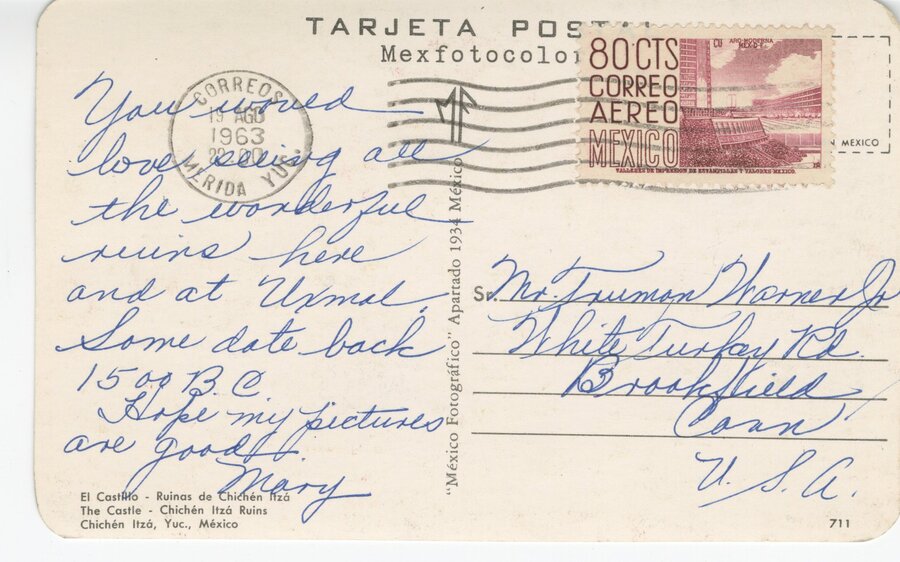 TARJETA POSTAL
Mexfotocolor
CORREOS
19 AGO
1963
MERIDA YUC.
80 CTS
CORREO
AEREO
MEXICO
CU ARQ. MODERNA
MEX. D.F.
TALLERES DE IMPRESION DE ESTAMPILLAS Y VALORES. MEXICO.
N MEXICO
You would
love seeing all
the wonderful
ruins here
and at Uxmal.
Some date back
1500 B.C
Hope my pictures
are good.
Mary
"México Fotográfico" Apartado 1934 México
Sr. Mr. Truman Warner Jr
White Turkey Rd.
Brookfield
Conn
U. S. A.
El Castillo - Ruinas de Chichén Itzá
The Castle - Chichén Itzá Ruins
Chichén Itzá, Yuc., México
711